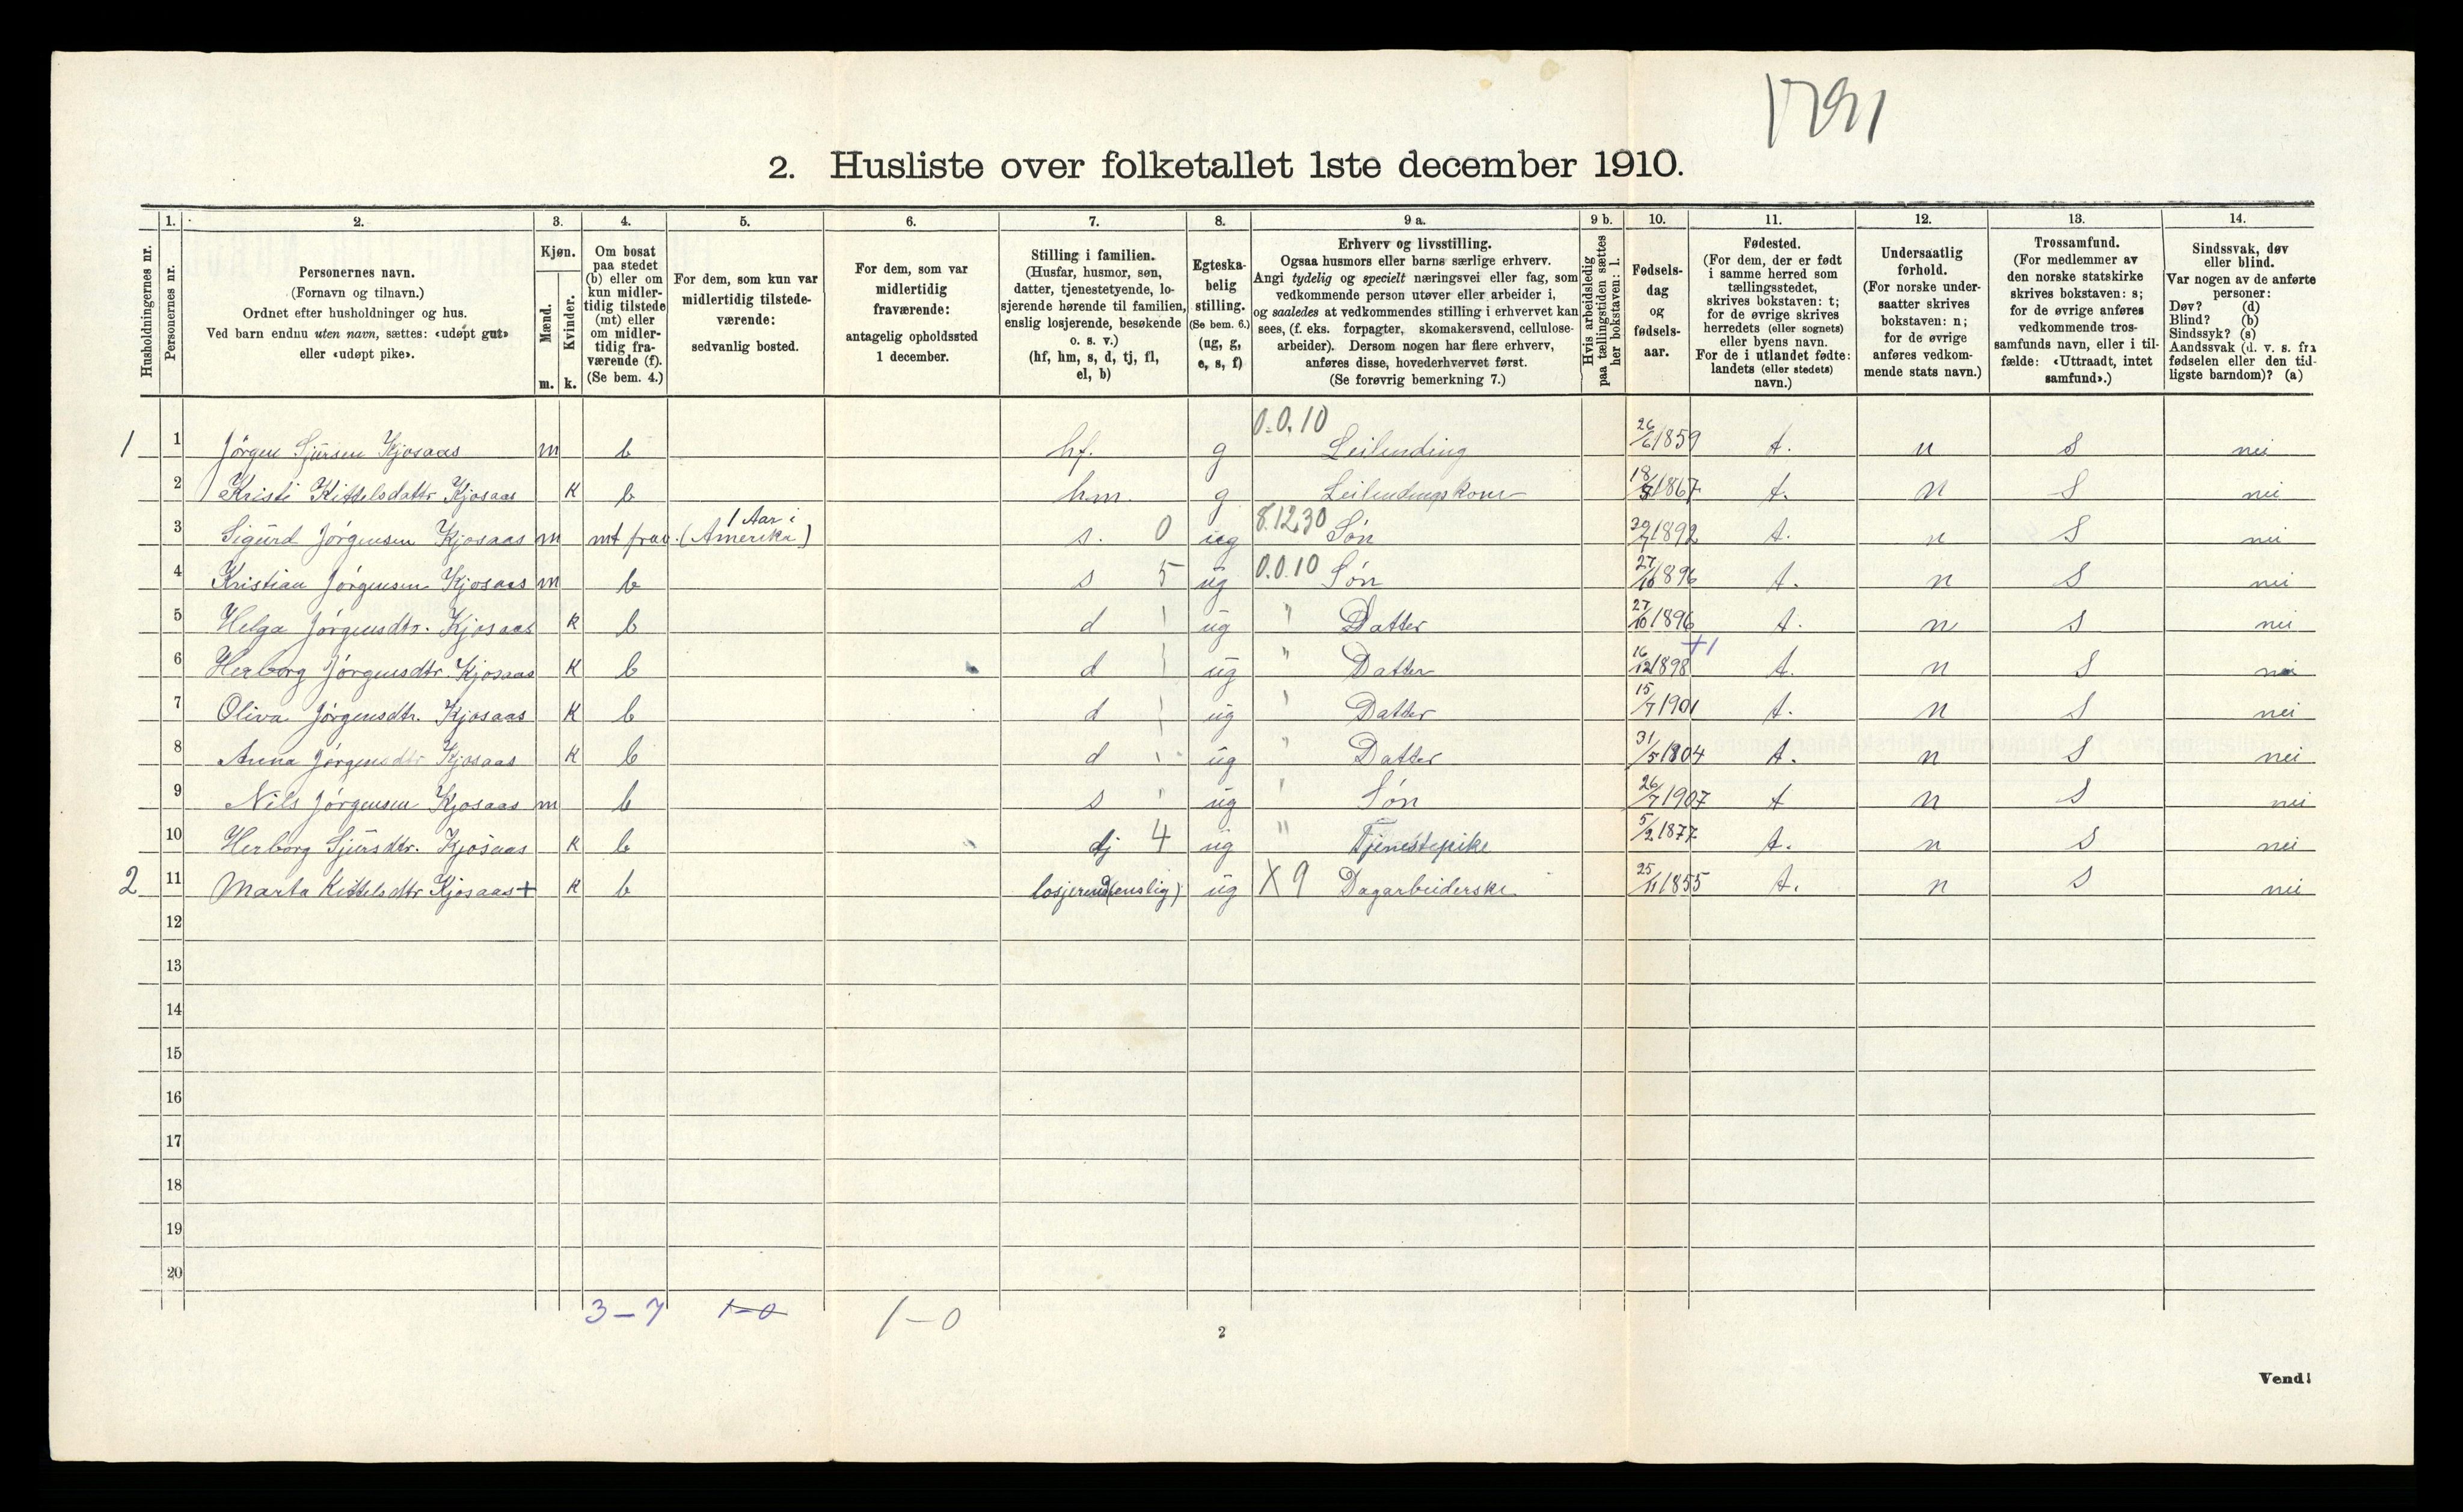 1791
2. Husliste over folketallet 1ste december 1910.
Husholdningernes nr.
1. Personernes nr.
2. Personernes navn.
(Fornavn og tilnavn.)
Ordnet efter husholdninger og hus.
Ved barn endnu uten navn, sættes: «udøpt gut»
eller «udøpt pike».
3. Kjøn.
Mænd. m.
Kvinder. k.
4. Om bosat
paa stedet
(b) eller om
kun midler-
tidig tilstede
(mt) eller
om midler-
tidig fra-
værende (f).
(Se bem. 4.)
5. For dem, som kun var
midlertidig tilstede-
værende:
sedvanlig bosted.
6. For dem, som var
midlertidig
fraværende:
antagelig opholdssted
1 december.
7. Stilling i familien.
(Husfar, husmor, søn,
datter, tjenestetyende, lo-
sjerende hørende til familien,
enslig losjerende, besøkende
o. s. v.)
(hf, hm, s, d, tj, fl,
el, b)
8. Egteska-
belig
stilling.
(Se bem. 6.)
(ug, g,
e, s, f)
9 a. Erhverv og livsstilling.
Ogsaa husmors eller barns særlige erhverv.
Angi tydelig og specielt næringsvei eller fag, som
vedkommende person utøver eller arbeider i,
og saaledes at vedkommendes stilling i erhvervet kan
sees, (f. eks. forpagter, skomakersvend, cellulose-
arbeider). Dersom nogen har flere erhverv,
anføres disse, hovederhvervet først.
(Se forøvrig bemerkning 7.)
9 b. Hvis arbeidsledig
paa tællingstiden sættes
her bokstaven: l.
10. Fødsels-
dag
og
fødsels-
aar.
11. Fødested.
(For dem, der er født
i samme herred som
tællingsstedet,
skrives bokstaven: t;
for de øvrige skrives
herredets (eller sognets)
eller byens navn.
For de i utlandet fødte:
landets (eller stedets)
navn.)
12. Undersaatlig
forhold.
(For norske under-
saatter skrives
bokstaven: n;
for de øvrige
anføres vedkom-
mende stats navn.)
13. Trossamfund.
(For medlemmer av
den norske statskirke
skrives bokstaven: s;
for de øvrige anføres
vedkommende tros-
samfunds navn, eller i til-
fælde: «Uttraadt, intet
samfund».)
14. Sindssvak, døv
eller blind.
Var nogen av de anførte
personer:
Døv? (d)
Blind? (b)
Sindssyk? (s)
Aandssvak (d. v. s. fra
fødselen eller den tid-
ligste barndom)? (a)
1 1 Jørgen Sjursen Kjosaas m b hf. g 0.0.10 Leilending 26/6 1859 t. n s nei
2 Kristi Kittelsdattr Kjosaas k b hm. g Leilendingskone 18/ 1867 t. n S nei
3 Sigurd Jørgensen Kjosaas m mt frav. (1 Aar i Amerika) s. 0 ug 8.12.30 Søn 1892 t. n S nei
4 Kristian Jørgensen Kjosaas m b s 5 ug 0.0.10 Søn 27/10 1896 t. n S nei
5 Helga Jørgensdtr. Kjosaas k b d ug " Datter 27/10 1896 t. n S nei
6 Herborg Jørgensdtr. Kjosaas k b d ug " Datter 16/12 1898 +1 t. n S nei
7 Oliva Jørgensdtr. Kjosaas k b d ug " Datter 15/7 1901 t. n S nei
8 Anna Jørgensdtr Kjosaas k b d ug " Datter 31/5 1904 t. n S nei
9 Nils Jørgensen Kjosaas m b s ug " Søn 26/7 1907 t n S nei
10 Herborg Sjursdtr. Kjosaas k b tj 4 ug " Tjenestepike 5/2 1877 t. n S nei
2 11 Marta Kittelsdtr Kjosaas + k b losjerend(enslig) ug X 9 Dagarbeiderske 25/11 1855 t. n S nei
12
13
14
15
16
17
18
19
20
3 – 7 1 – 0 1 – 0
2
Vend!